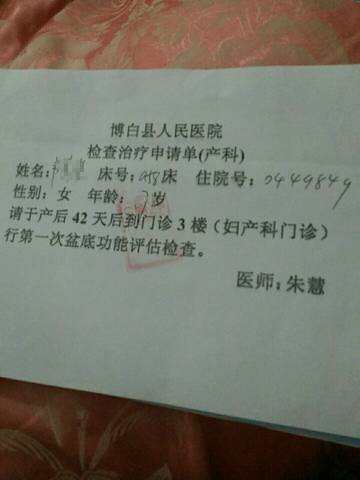 博白县人民医院
检查治疗申请单(产科)
姓名: 床号: 床 住院号: 0449849
性别: 女 年龄: 岁
请于产后 42 天后到门诊 3 楼（妇产科门诊）
行第一次盆底功能评估检查。
医师: 朱慧